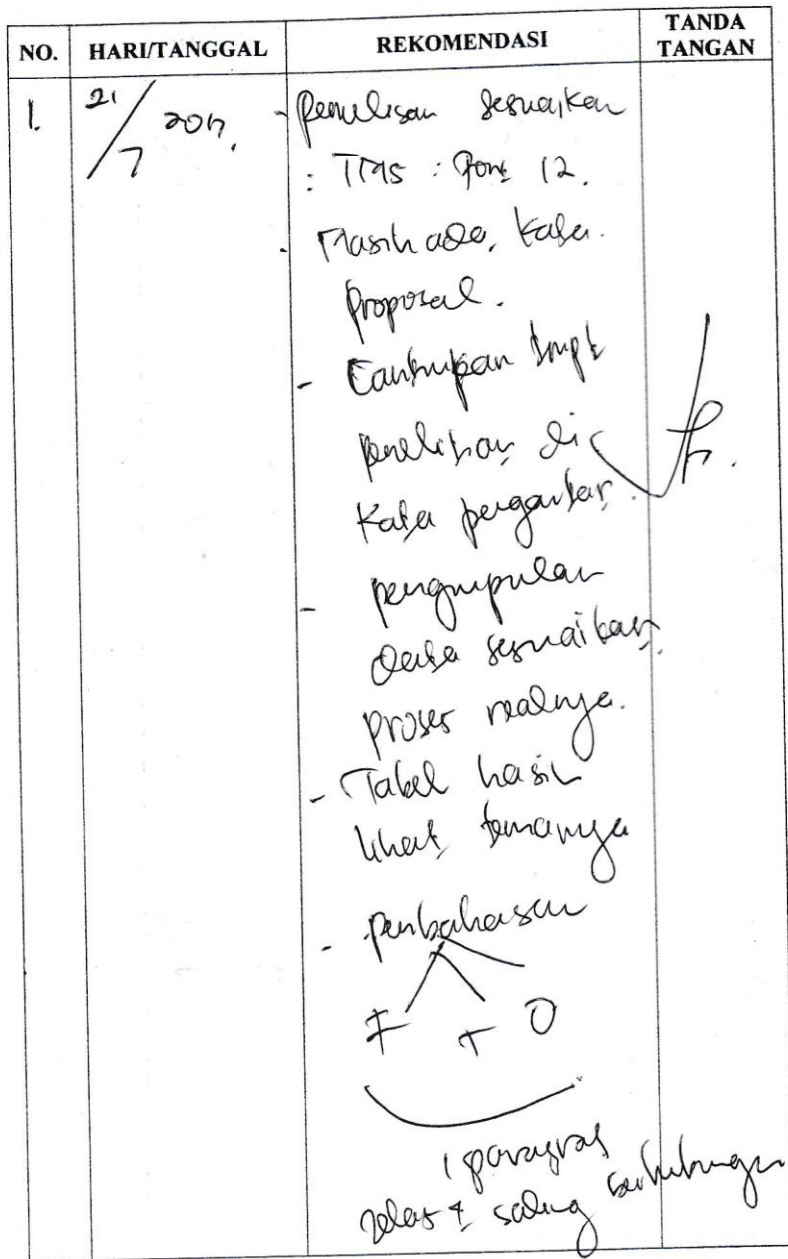 NO. HARI/TANGGAL REKOMENDASI TANDA TANGAN
1. 21/7 2017. - Penulisan sesuaikan
: TMS : Font 12.
- Masih ada, kata.
proposal.
- Cantumkan tmpt
penelitian di
kata pengantar.
- pengumpulan
data sesuaikan
proses realnya.
- Tabel hasil
lihat, temanya
- pembahasan
F T O
1 paragraf
jelas & saling berhubungan